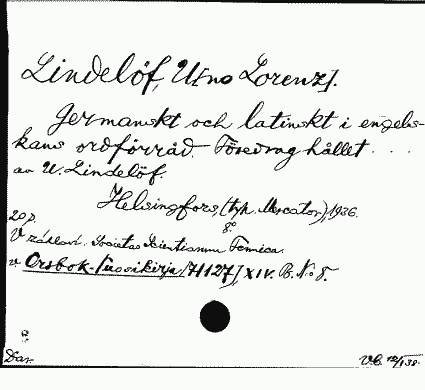 Lindelöf, U[no Lorenz].
Germanskt och latinskt i engels-
kans ordförråd. Föredrag hållet . . .
av U. Lindelöf.
Helsingfors, (tryk. Mercator), 1936.
20 p. 8°
V záhlaví: Societas Scientiarum Fennica.
v Årsbok-Vuosikirja [71127], XIV. B. No 8.
Dar.